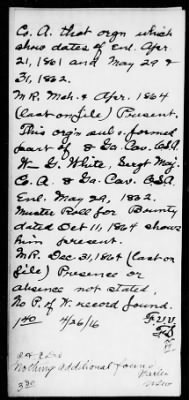 Co. A. that orgn which
show dates of Enl. Apr.
21, 1861 and May 29 &
31, 1862.
M.R. Mch. & Apr. 1864
(last on file) Present.
This org'n subs. formed
part of 8 Ga. Cav. C.S.A.
W- G. White, Sergt Maj.
Co. A. 8 Ga. Cav. C.S.A.
Enl. May 29, 1862.
Muster Roll for Bounty
dated Oct 11, 1864 shows
him present.
M.R. Dec. 31, 1864 (last on
file) Presence or
absence not stated.
No P. of W. record found.
1 40 4/26/16
Nothing additional found
3 30